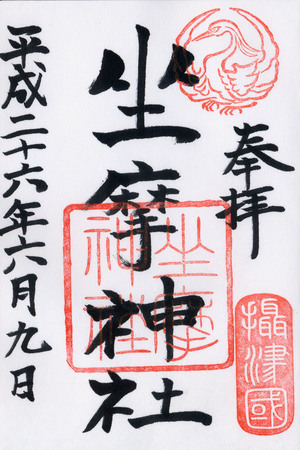 奉拝
攝津國
坐摩神社
坐摩神社
平成二十六年六月九日